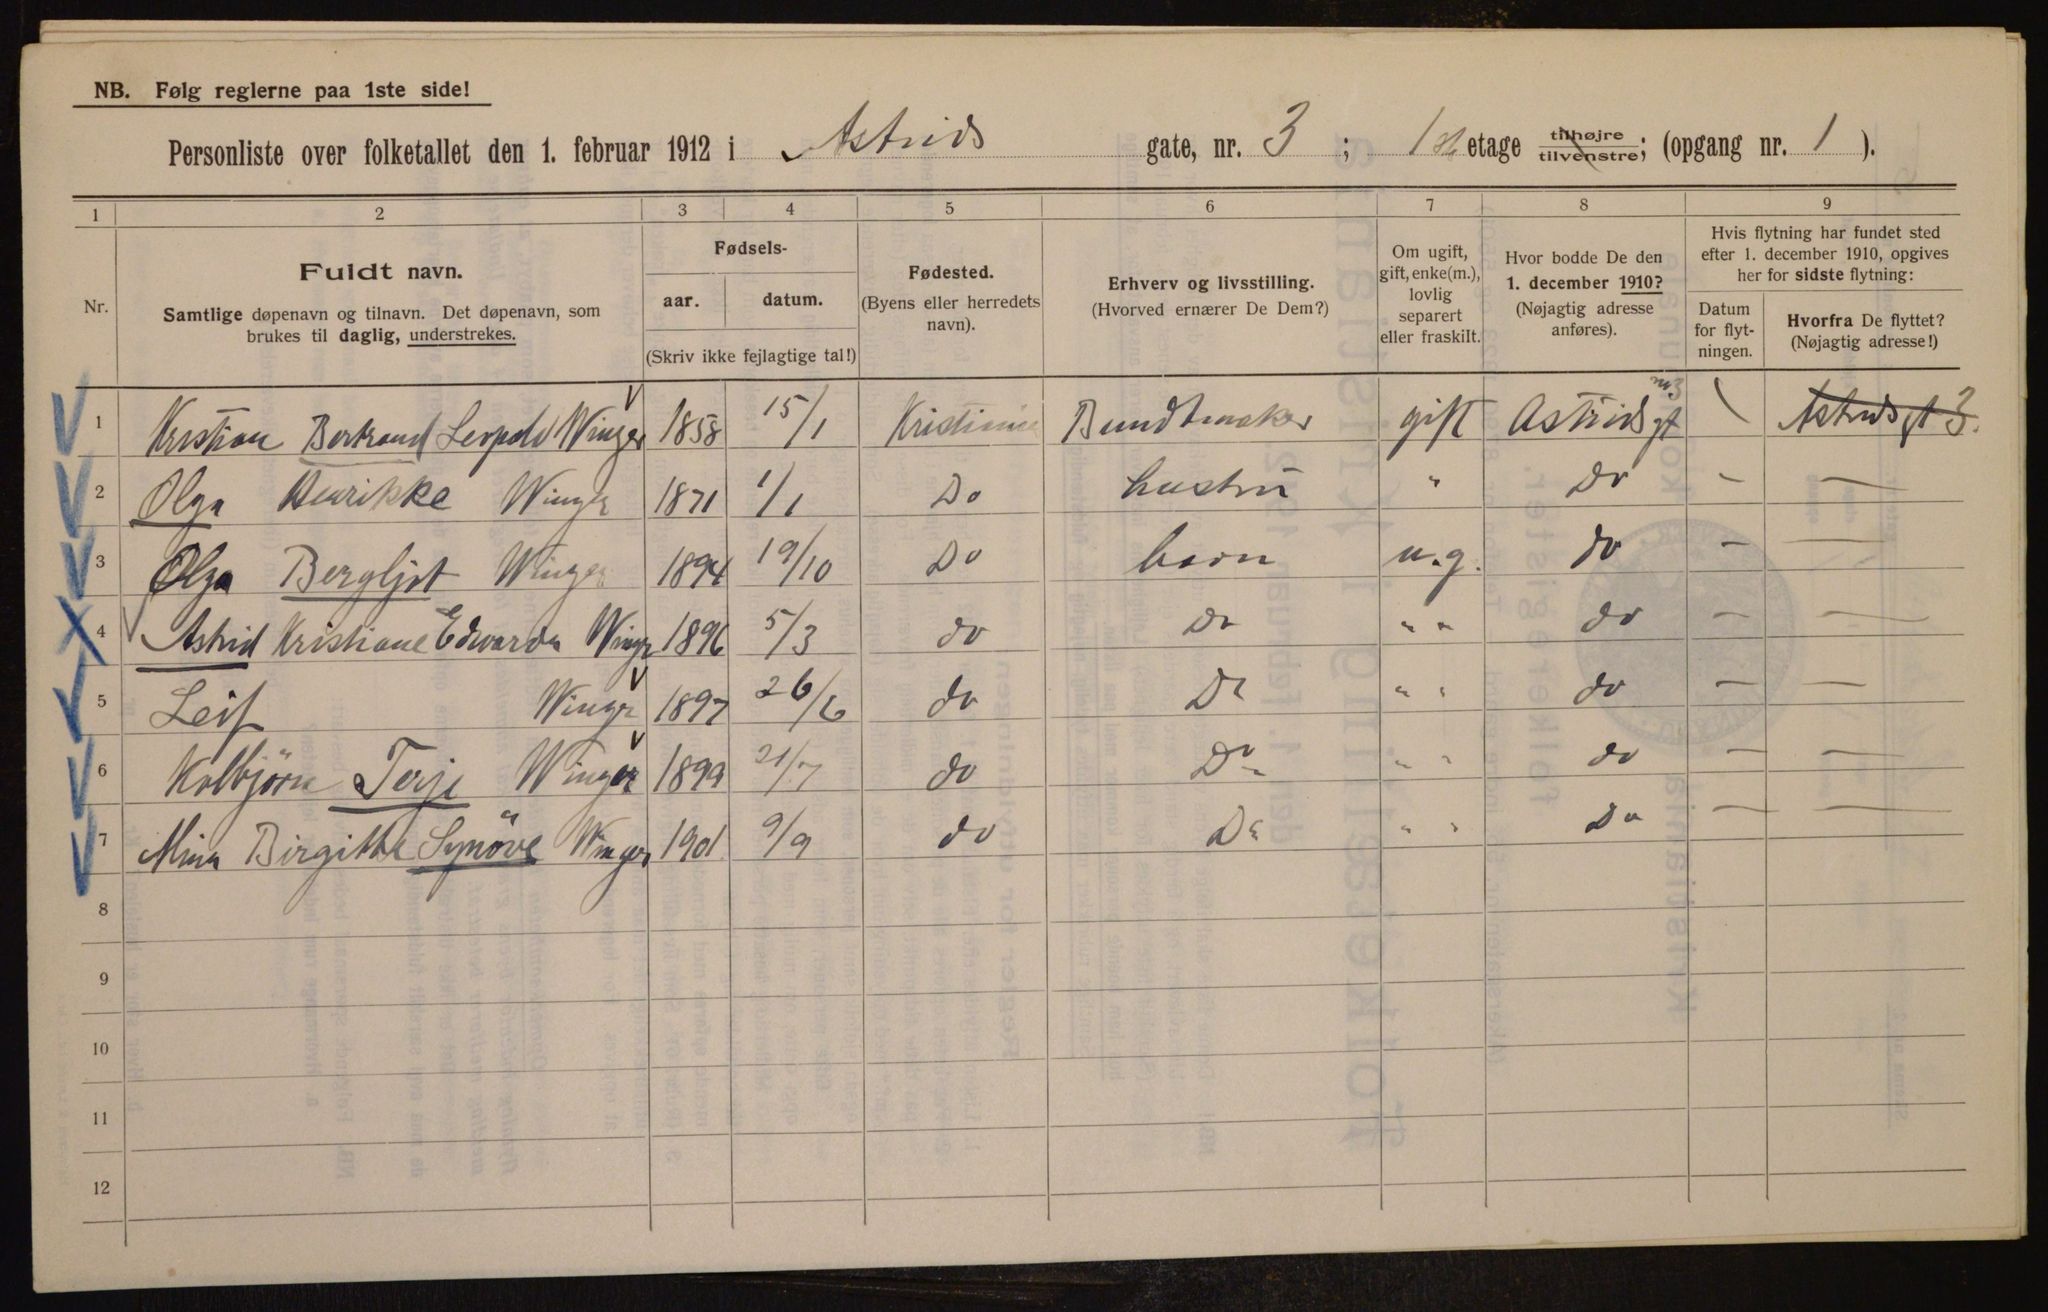 NB. Følg reglerne paa 1ste side!
Personliste over folketallet den 1. februar 1912 i Astrids gate, nr. 3; 1st etage tilhøjre tilvenstre; (opgang nr. 1).
1 2 3 4 5 6 7 8 9
Nr.
Fuldt navn.
Samtlige døpenavn og tilnavn. Det døpenavn, som
brukes til daglig, understrekes.
Fødsels-
aar. datum.
(Skriv ikke fejlagtige tal!)
Fødested.
(Byens eller herredets
navn).
Erhverv og livsstilling.
(Hvorved ernærer De Dem?)
Om ugift,
gift, enke(m.),
lovlig
separert
eller fraskilt.
Hvor bodde De den
1. december 1910?
(Nøjagtig adresse
anføres).
Hvis flytning har fundet sted
efter 1. december 1910, opgives
her for sidste flytning:
Datum
for flyt-
ningen.
Hvorfra De flyttet?
(Nøjagtig adresse!)
1 Kristian Bertrand Leopold Winger 1858 15/1 Kristiania Bundtmaker gift Astrids gt nr. 3 Astrids gt 3.
2 Olga Henrikke Winger 1871 1/1 Do hustru " Do — —
3 Olga Bergljot Winger 1894 19/10 Do barn u.g. do — —
4 Astrid Kristiane Edvarda Winger 1896 5/3 do Do " " do — —
5 Leif Winger 1897 26/6 do Do " " do — —
6 Kolbjörn Terje Winger 1899 21/7 do Do " " do — —
7 Mina Birgitte Synöve Winger 1901 9/9 do Do " " Do — —
8
9
10
11
12